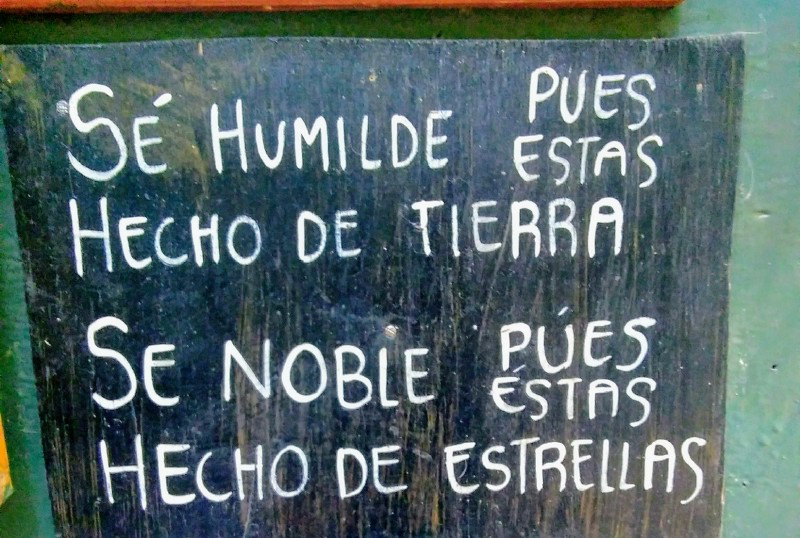 SÉ HUMILDE PUES ESTAS
HECHO DE TIERRA
SE NOBLE PÚES ÉSTAS
HECHO DE ESTRELLAS